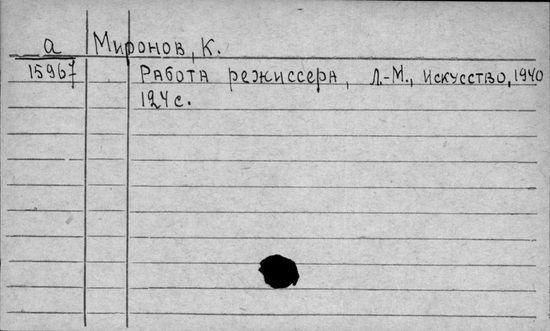 а Миронов, К.
15967 Работа режиссера, Л.-М., Искусство, 1940
124 с.